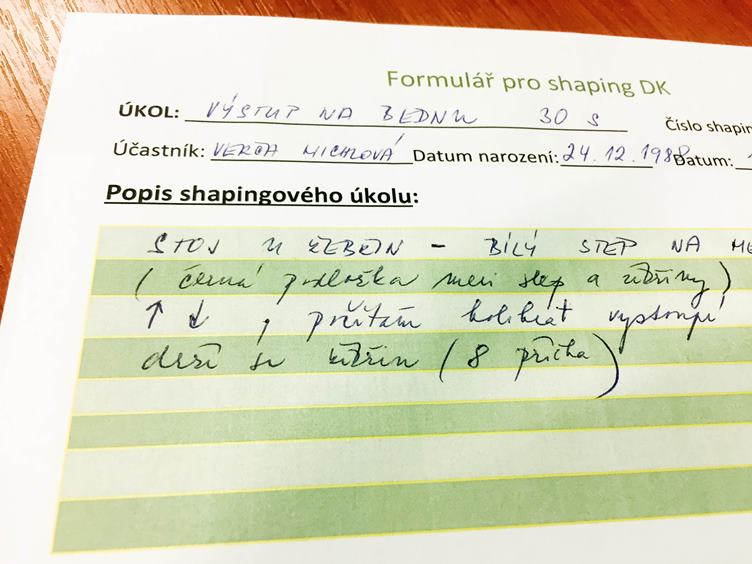 Formulář pro shaping DK
ÚKOL: VÝSTUP NA BEDNU 30 S
Číslo shapin
Účastník: MICHLOVÁ Datum narození: 24.12.1988 Datum:
Popis shapingového úkolu:
STOJ U ŽEBŘIN – BÍLÝ STEP NA
(černá podložka mezi step a žebřiny)
↑ ↓, počítám kolikrát vystoupí
drží se žebřin (8 příčka)